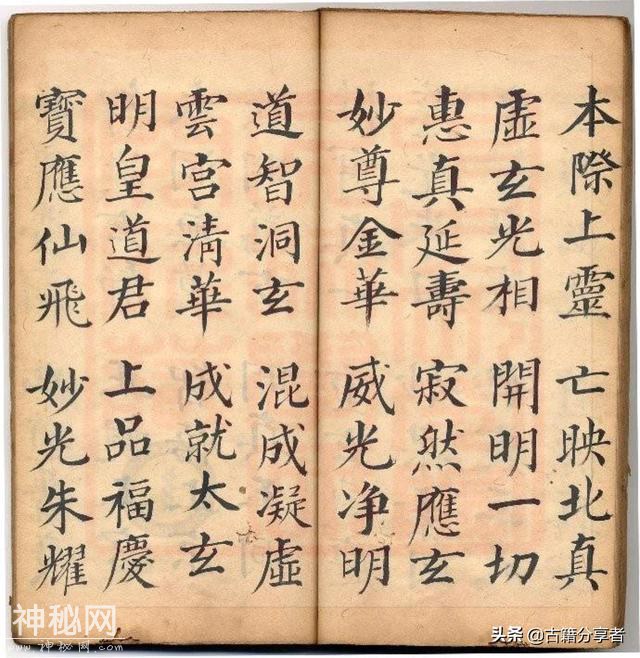 本際上靈 亡映北真
虛玄光相 開明一切
惠真延壽 寂然應玄
妙尊金華 威光净明
道智洞玄 混成凝虛
雲宮淸華 成就太玄
明皇道君 上品福慶
寶應仙飛 妙光朱耀
神秘网
www.神秘网.com
头条 @古籍分享者